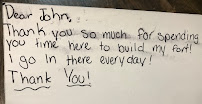 Dear John,
Thank you so much for spending
you time here to build my fort!
I go in there everyday!
Thank You!